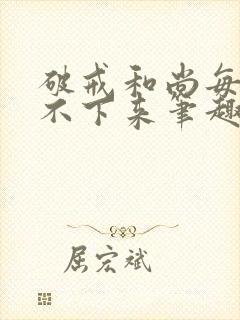 破戒和尚每
不下来笔趣
屈宏斌